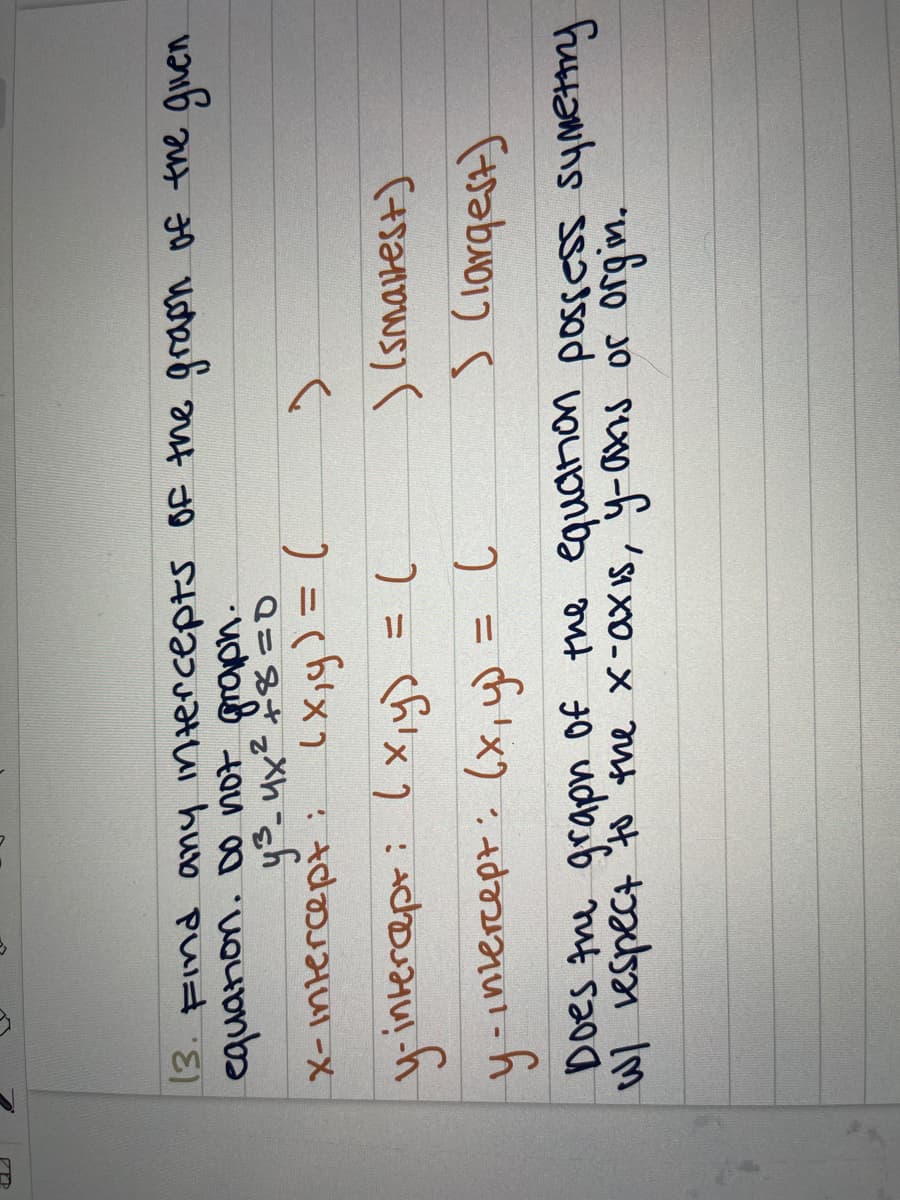 13. Find any intercepts of the graph of the given
equation. Do not graph.
y³-4x²+8=0
x-intercept: (x,y) = (        )
y-intercept: (x,y) = (        ) (smallest)
y-intercept: (x,y) = (        ) (largest)
Does the graph of the equation possess symetrny
w/ respect to the x-axis, y-axis or orgin.